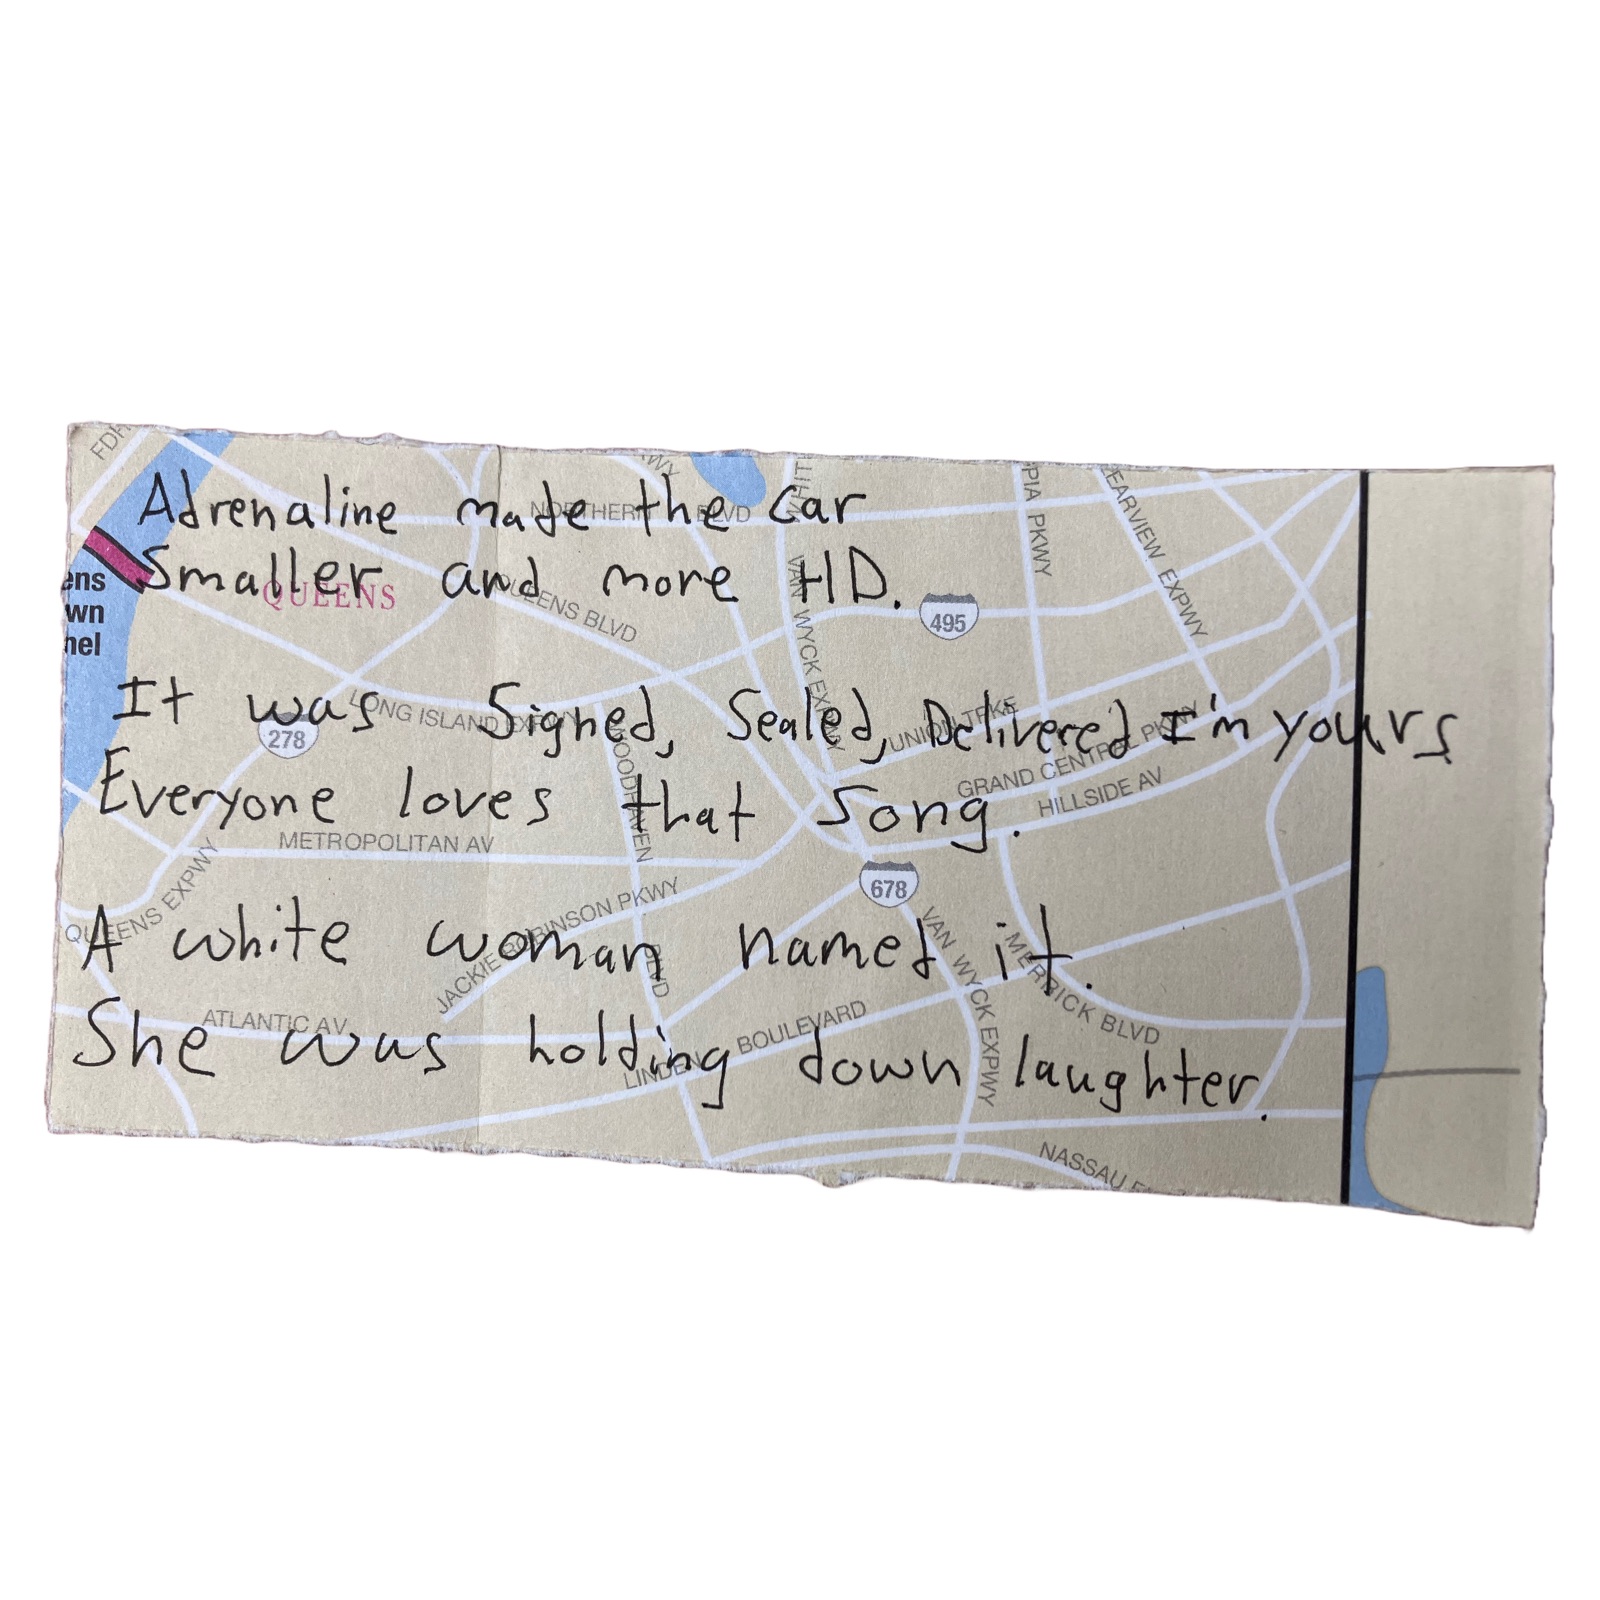 Adrenaline made the car
Smaller and more HD.
It was Signed, Sealed, Delivered I'm yours
Everyone loves that song.
A white woman named it.
She was holding down laughter.
FDR
NORTHERN BLVD
QUEENS
QUEENS BLVD
ens
wn
nel
495
VAN WYCK EXPWY
PIA PKWY
EARVIEW EXPWY
LONG ISLAND EXPWY
278
UNION TPKE
GRAND CENTRAL PKWY
HILLSIDE AV
WOODHAVEN
BLVD
METROPOLITAN AV
QUEENS EXPWY
JACKIE ROBINSON PKWY
678
VAN WYCK EXPWY
MERRICK BLVD
ATLANTIC AV
LINDEN BOULEVARD
NASSAU